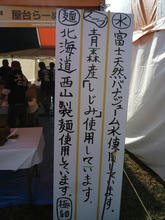 水 富士天然バナジューム水使用しています。
青森産「しじみ」使用しています。
麺 北海道西山製麺使用しています。
屋台らー